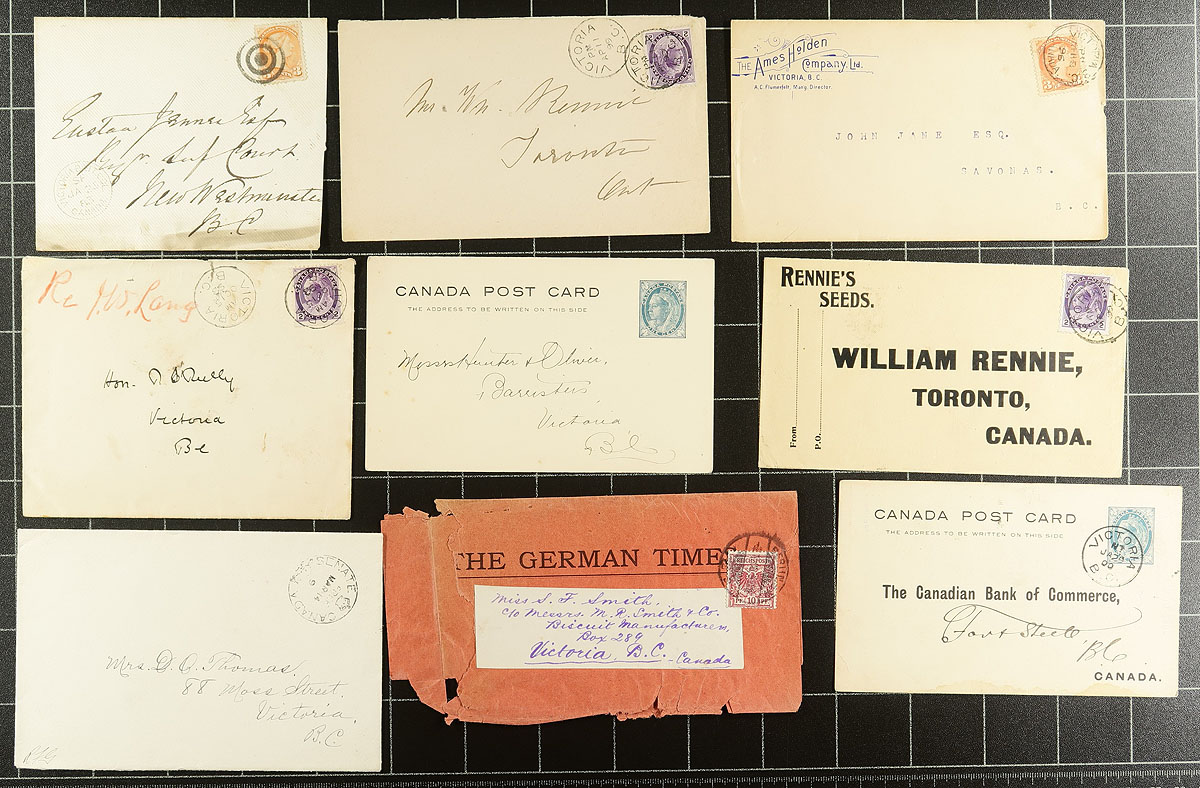 Court
New Westminster
B.C.
VICTORIA
B.C.
VICTORIA
Mr. Wm. Rennie
Toronto
Ont
THE Ames Holden
Company Ltd.
VICTORIA, B.C.
A.C. Flumerfelt, Mang. Director.
JOHN JANE ESQ.
SAVONAS.
B.C.
Re
VICTORIA
B.C.
Hon. P O'Reilly
Victoria
BC
CANADA POST CARD
THE ADDRESS TO BE WRITTEN ON THIS SIDE
Messrs Hunter & Oliver,
Barristers
Victoria
B.C.
RENNIE'S
SEEDS.
From
P.O.
WILLIAM RENNIE,
TORONTO,
CANADA.
SENATE
CANADA
Mrs. D. A. Thomas,
88 Moss Street.
Victoria,
B.C.
THE GERMAN TIME
REICHSPOST
10
Miss S. F. Smith.
c/o Messrs. M. R. Smith & Co.
Biscuit Manufacturers,
Box 289
Victoria B.C. Canada
CANADA POST CARD
THE ADDRESS TO BE WRITTEN ON THIS SIDE
VICTORIA
B.C.
The Canadian Bank of Commerce,
Fort Steele
B.C.
CANADA.